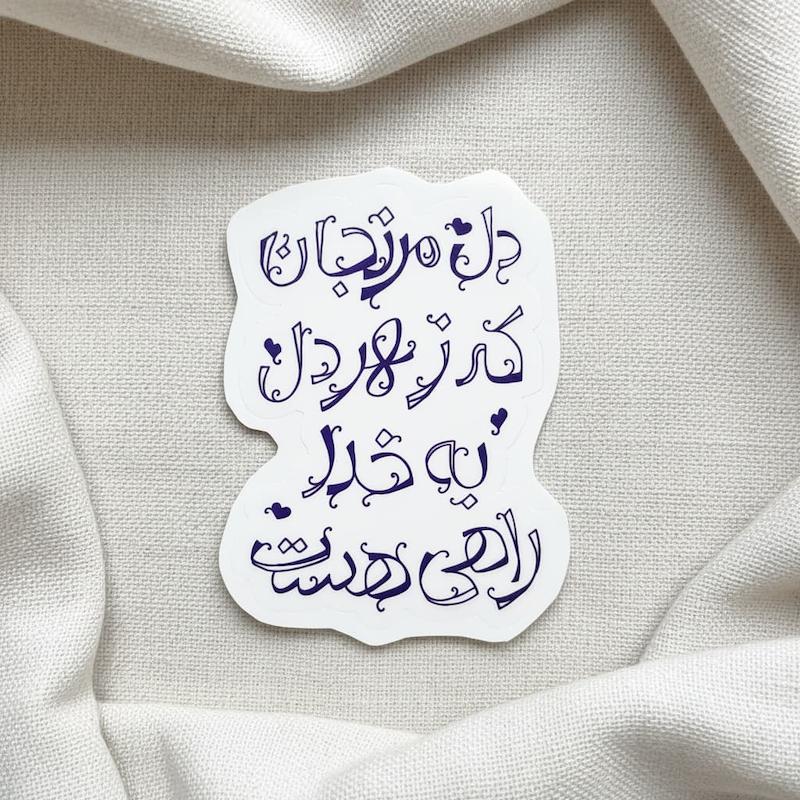 دل مرنجان
که ز هر دل
به خدا
راهی هست